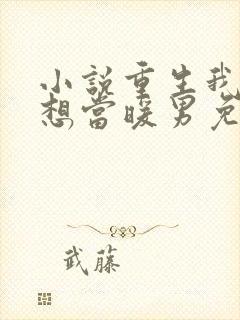 小說重生我
想當暖男免
武藤